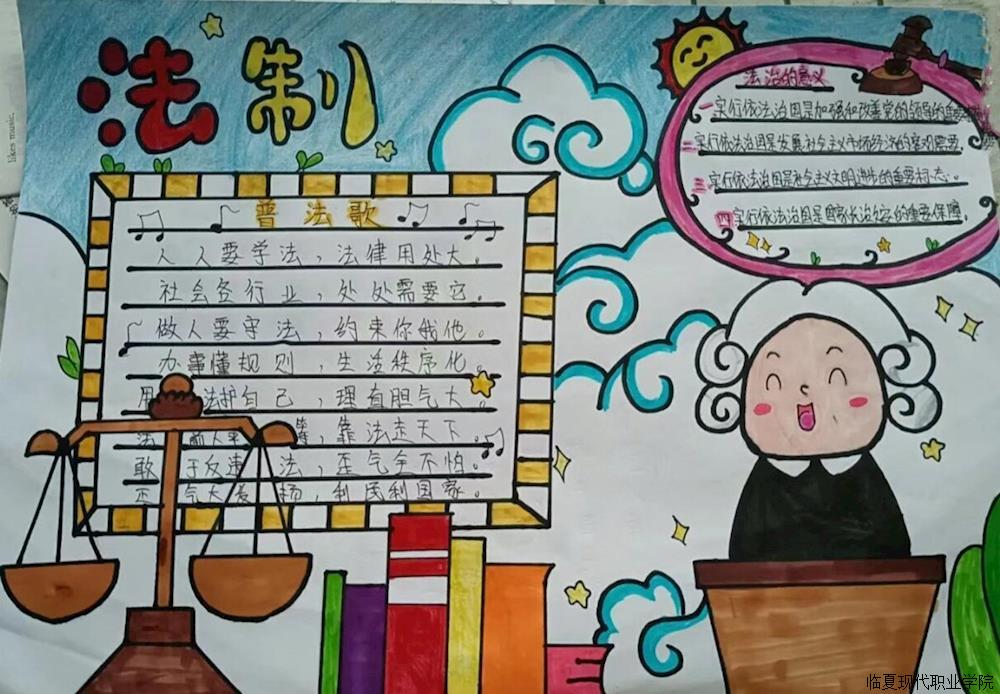 likes music.
法制
普法歌
人人要学法，法律用处大。
社会各行业，处处需要它。
做人要守法，约束你我他。
办事懂规则，生活秩序化。
用 法护自己，理直胆气大。
法 前人平 等，靠法走天下。
敢于反违法，歪气全不怕。
正气大发扬，利民利国家。
法治的意义
一实行依法治国是加强和改善党的领导的重要
二实行依法治国是发展社会主义市场经济的客观需要。
三实行依法治国是社会主义文明进步的重要标志。
四实行依法治国是国家长治久安的重要保障。
临夏现代职业学院